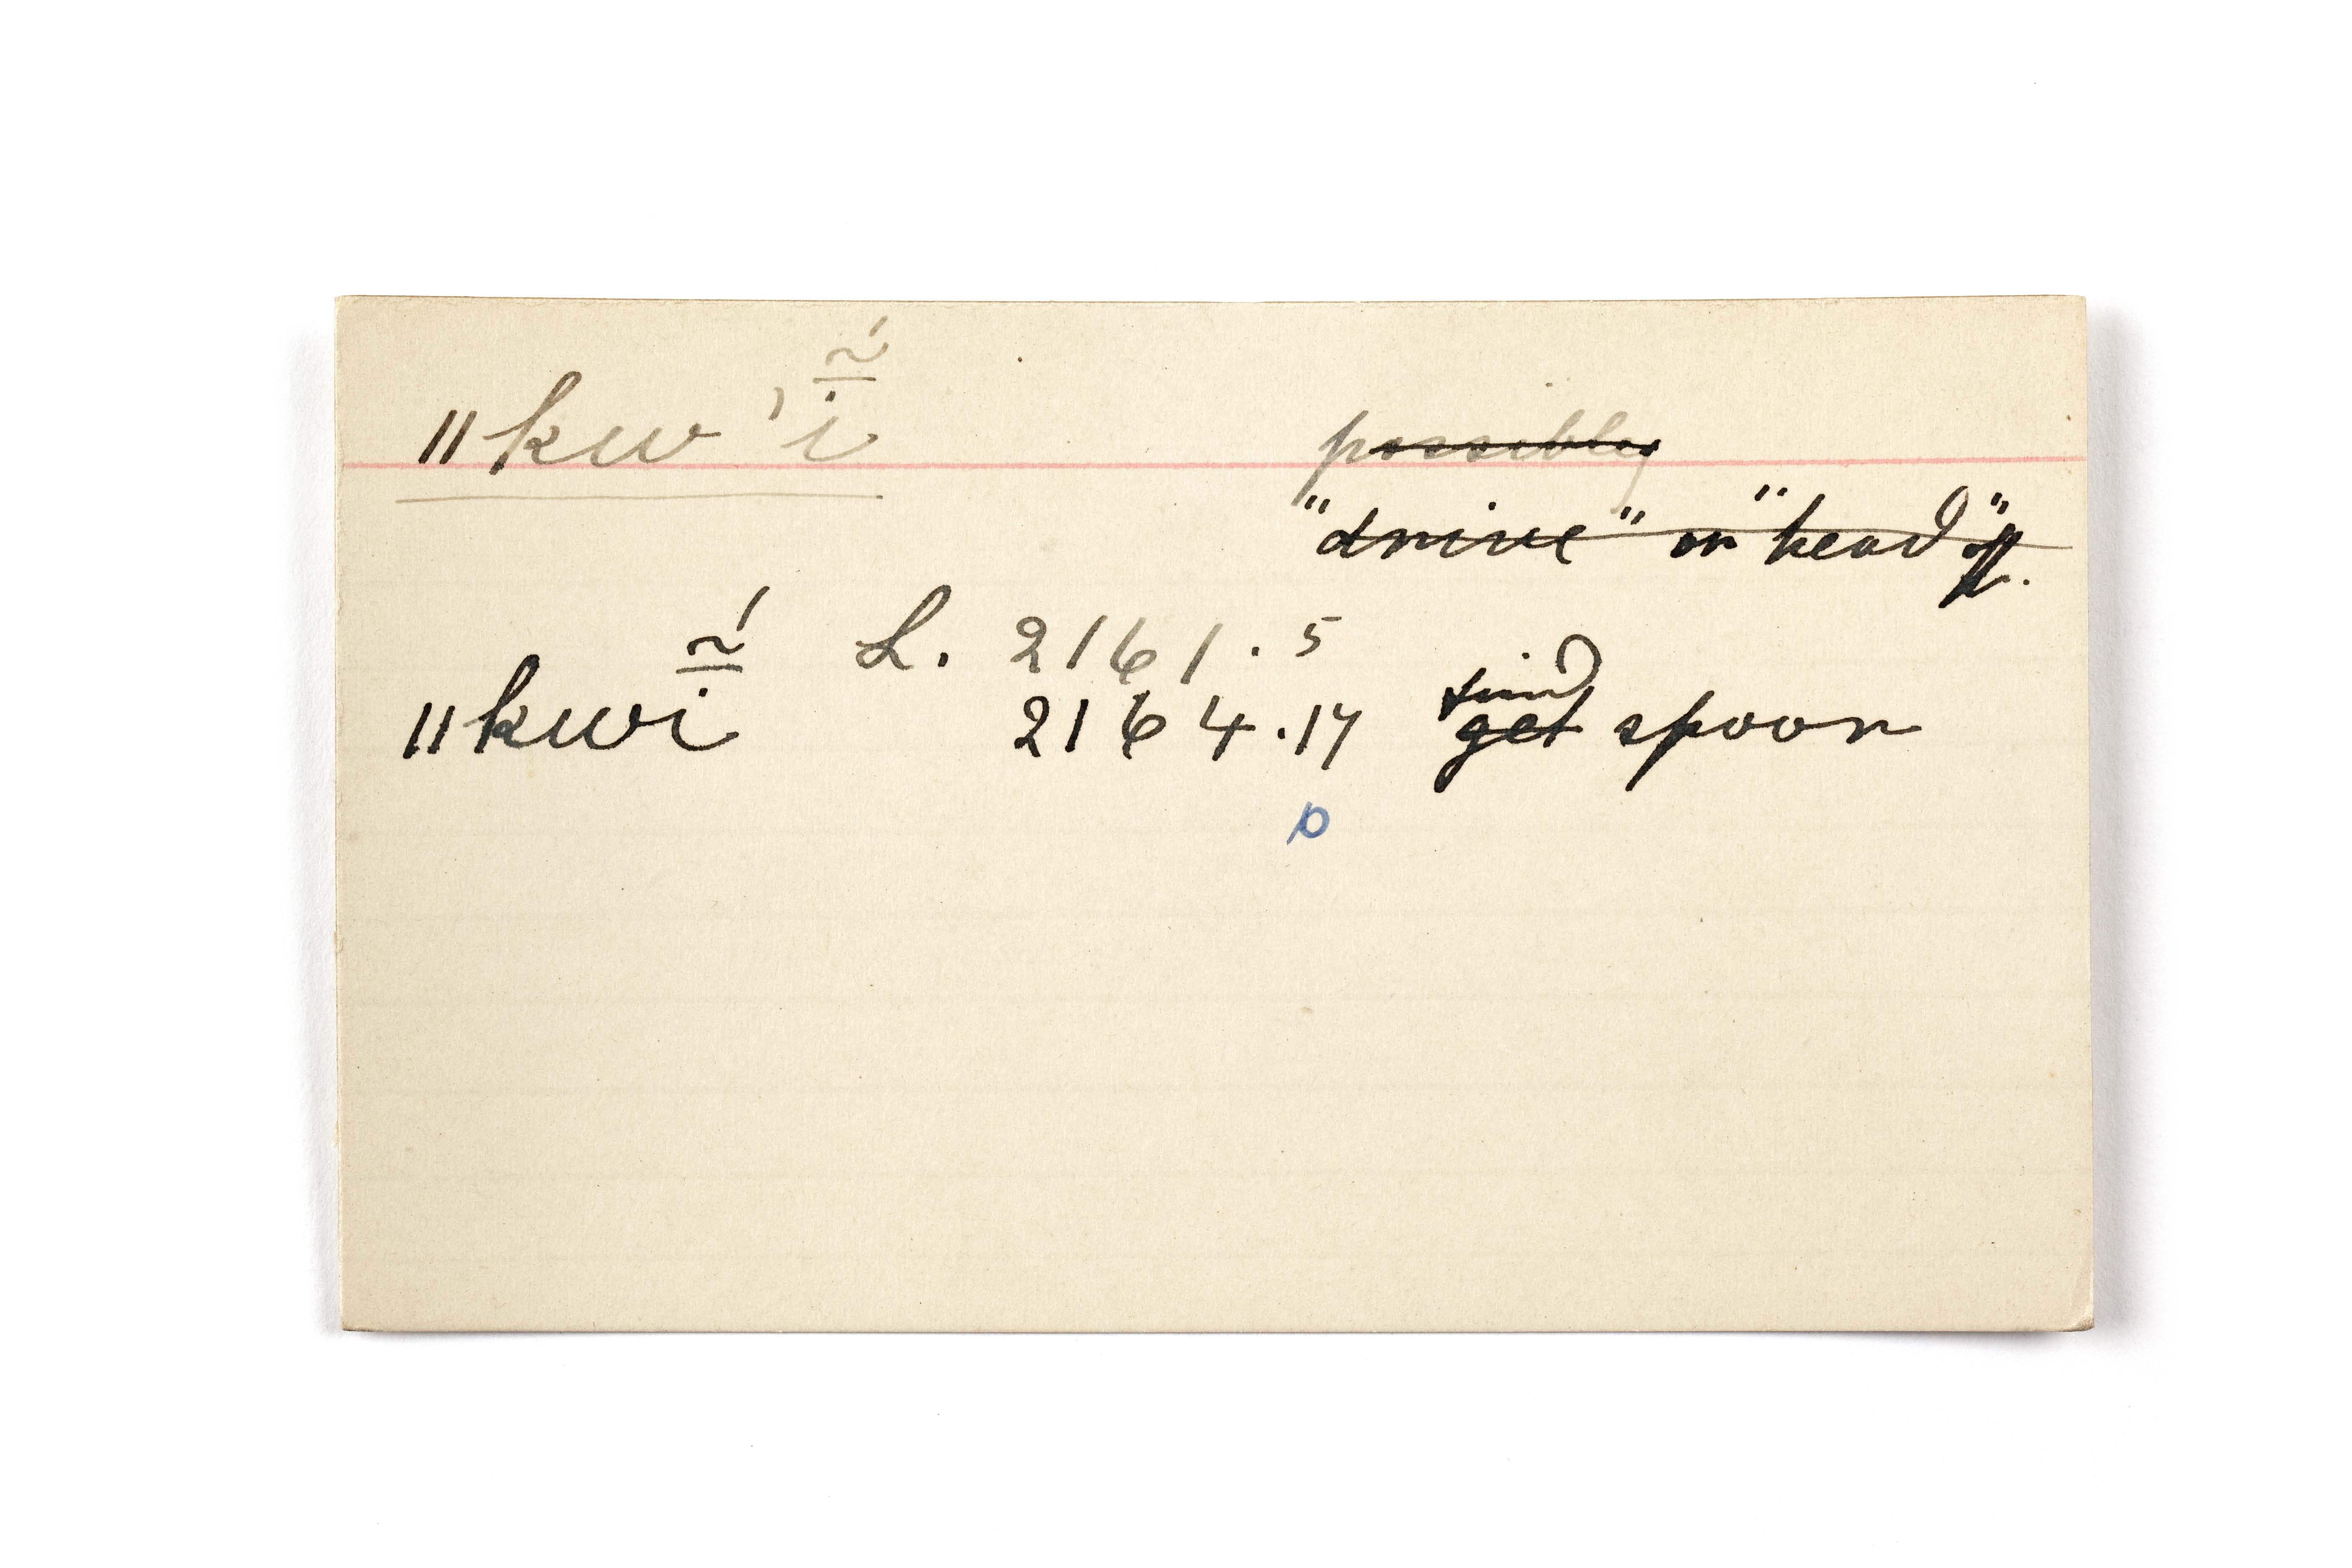 ||kw'ĩ̱́
possibly
"drive" or "head" of.
L. 2161.5
find
||kwĩ̱́ 2164.17 get spoon